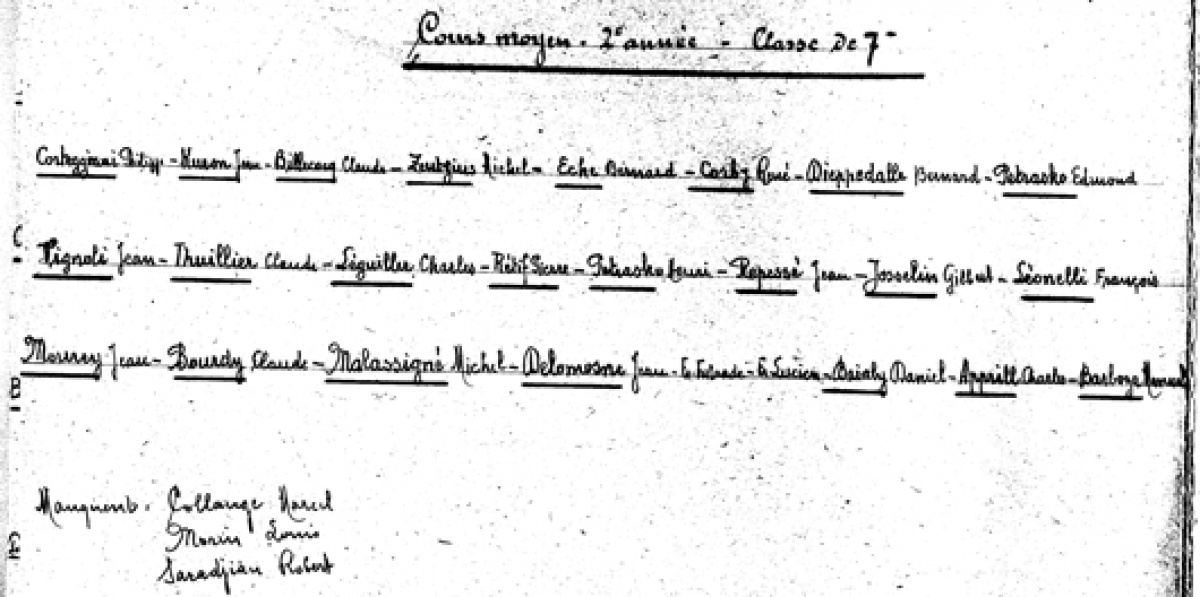 Cours moyen - 2e année - Classe de 7e
Corteggiani Philipp - Huron Jean - Billecocq Claude - Zentzius Michel - Eche Bernard - Cosby René - Dieppedalle Bernard - Petrasko Edmond
Vignoli Jean - Thuillier Claude - Séguiller Charles - Rétif Pierre - Petrasko Henri - Repessé Jean - Josselin Gilbert - Léonelli François
Mourey Jean - Bourdy Claude - Malassigné Michel - Delomosne Jean - Daniel - Apprill Charles -
Manquent. Collange Marcel
Morin Louis
Saradjian Robert